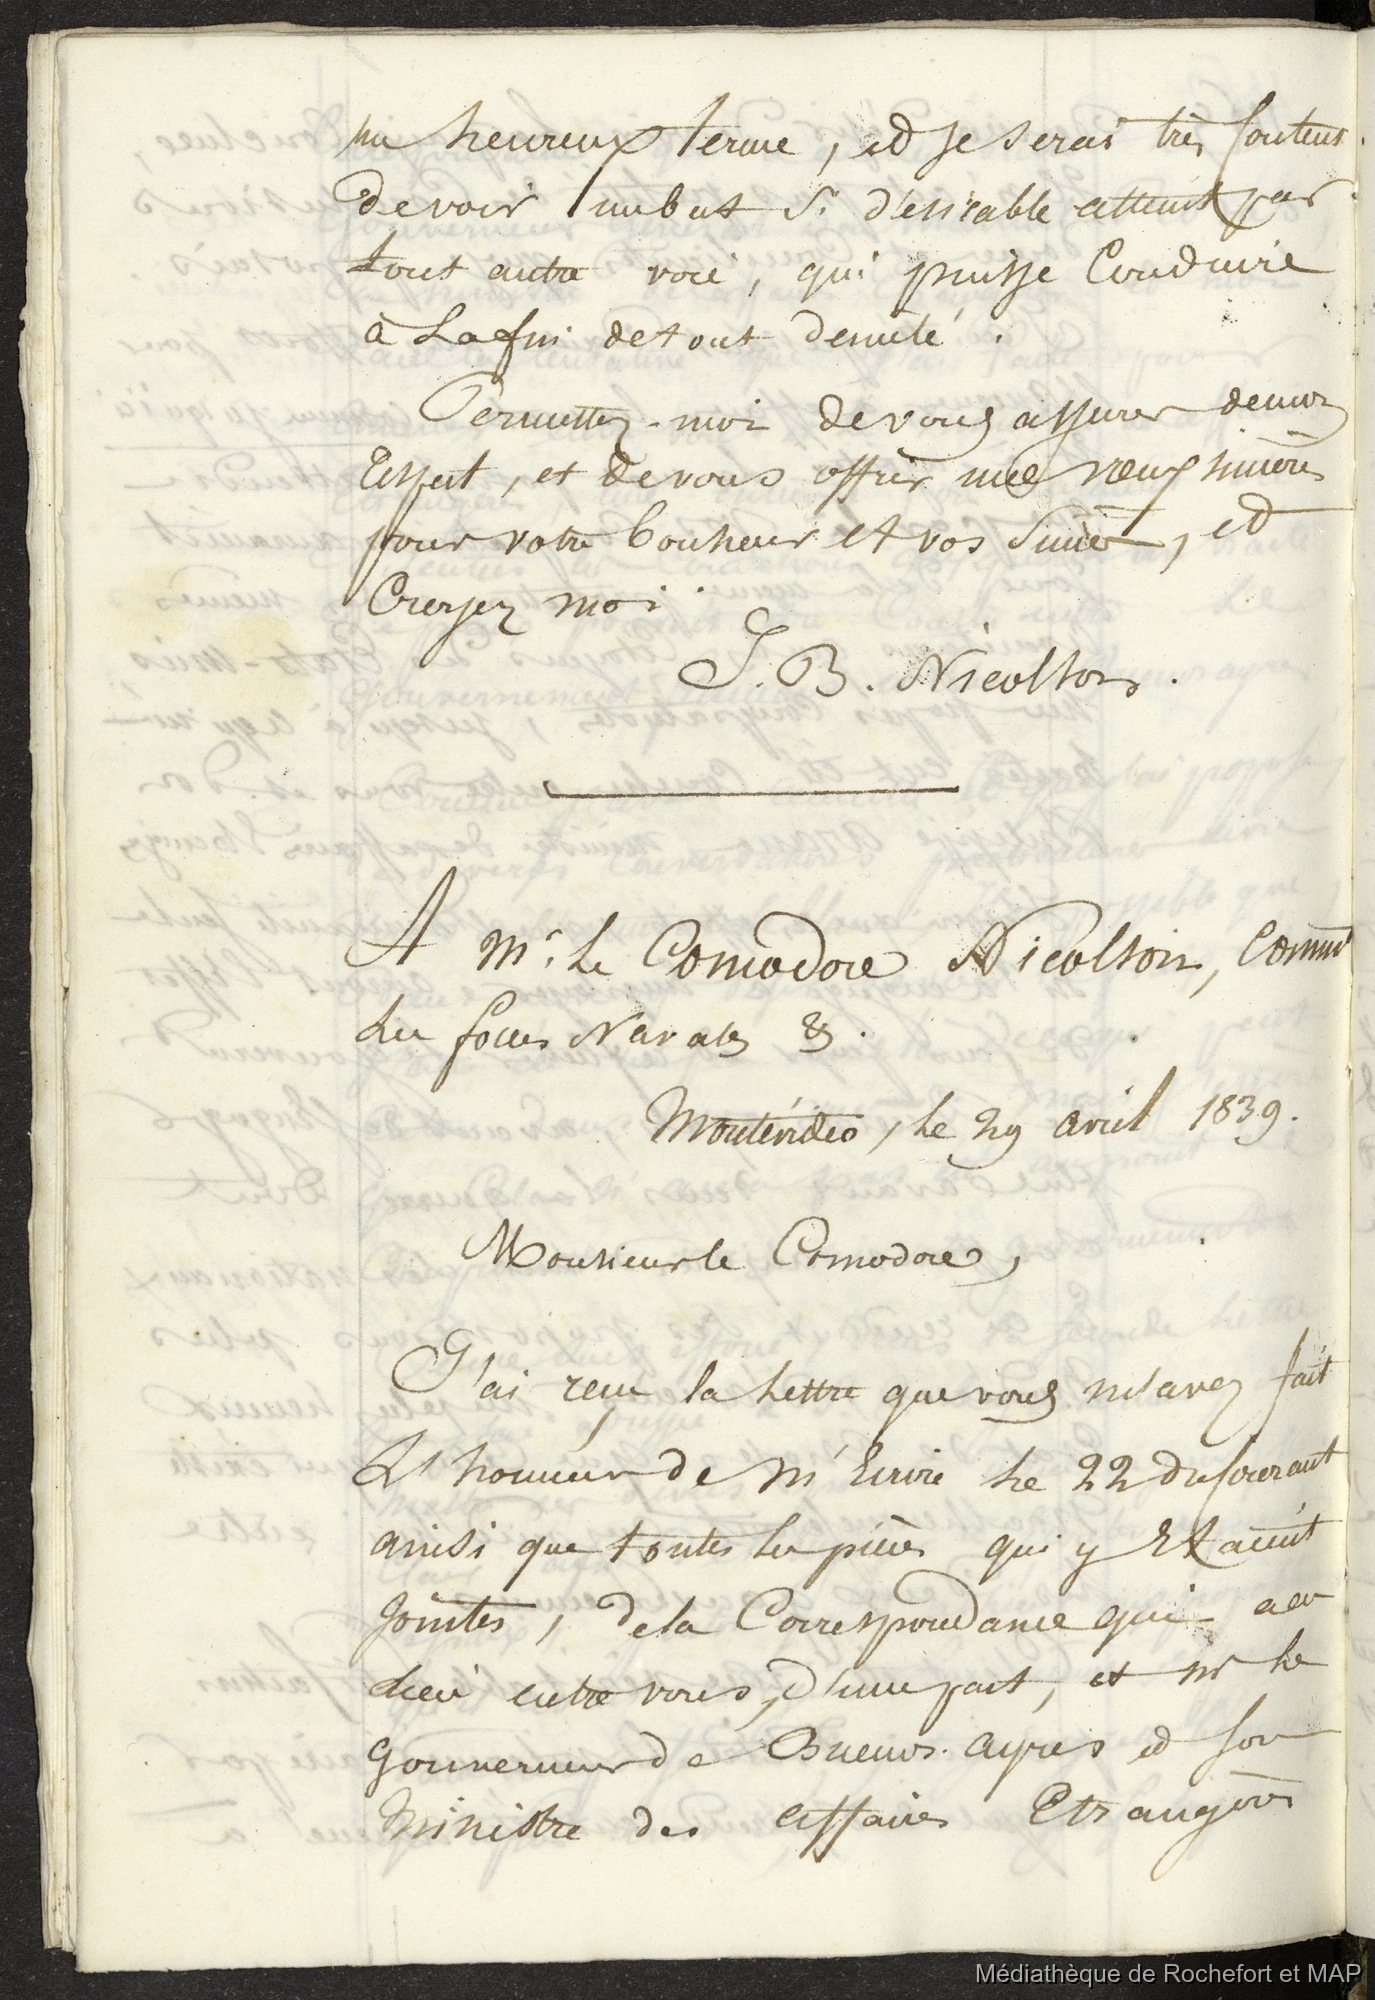 un heureux terme, et je serai très content
de voir un but si désirable atteint par
tout autre voie, qui puisse conduire
à la fin de tout démêlé.
Permettez-moi de vous assurer de mon
respect, et de vous offrir mes vœux sincères
pour votre bonheur et vos succès, et
Croyez moi.
J. B. Nicolson.
A Mr. le Comodore Nicolson, Commt
des forces Navales &.
Montévidéo, le 29 avril 1839.
Monsieur le Comodore,
J'ai reçu la lettre que vous m'avez fait
L'honneur de m'Ecrire le 22 du courant
ainsi que toutes les pièces qui y Etaient
Jointes, de la Correspondance qui a eu
lieu entre vous, d'une part, et Mr le
Gouverneur de Buenos-ayres et son
Ministre des affaires Etrangères
Médiathèque de Rochefort et MAP